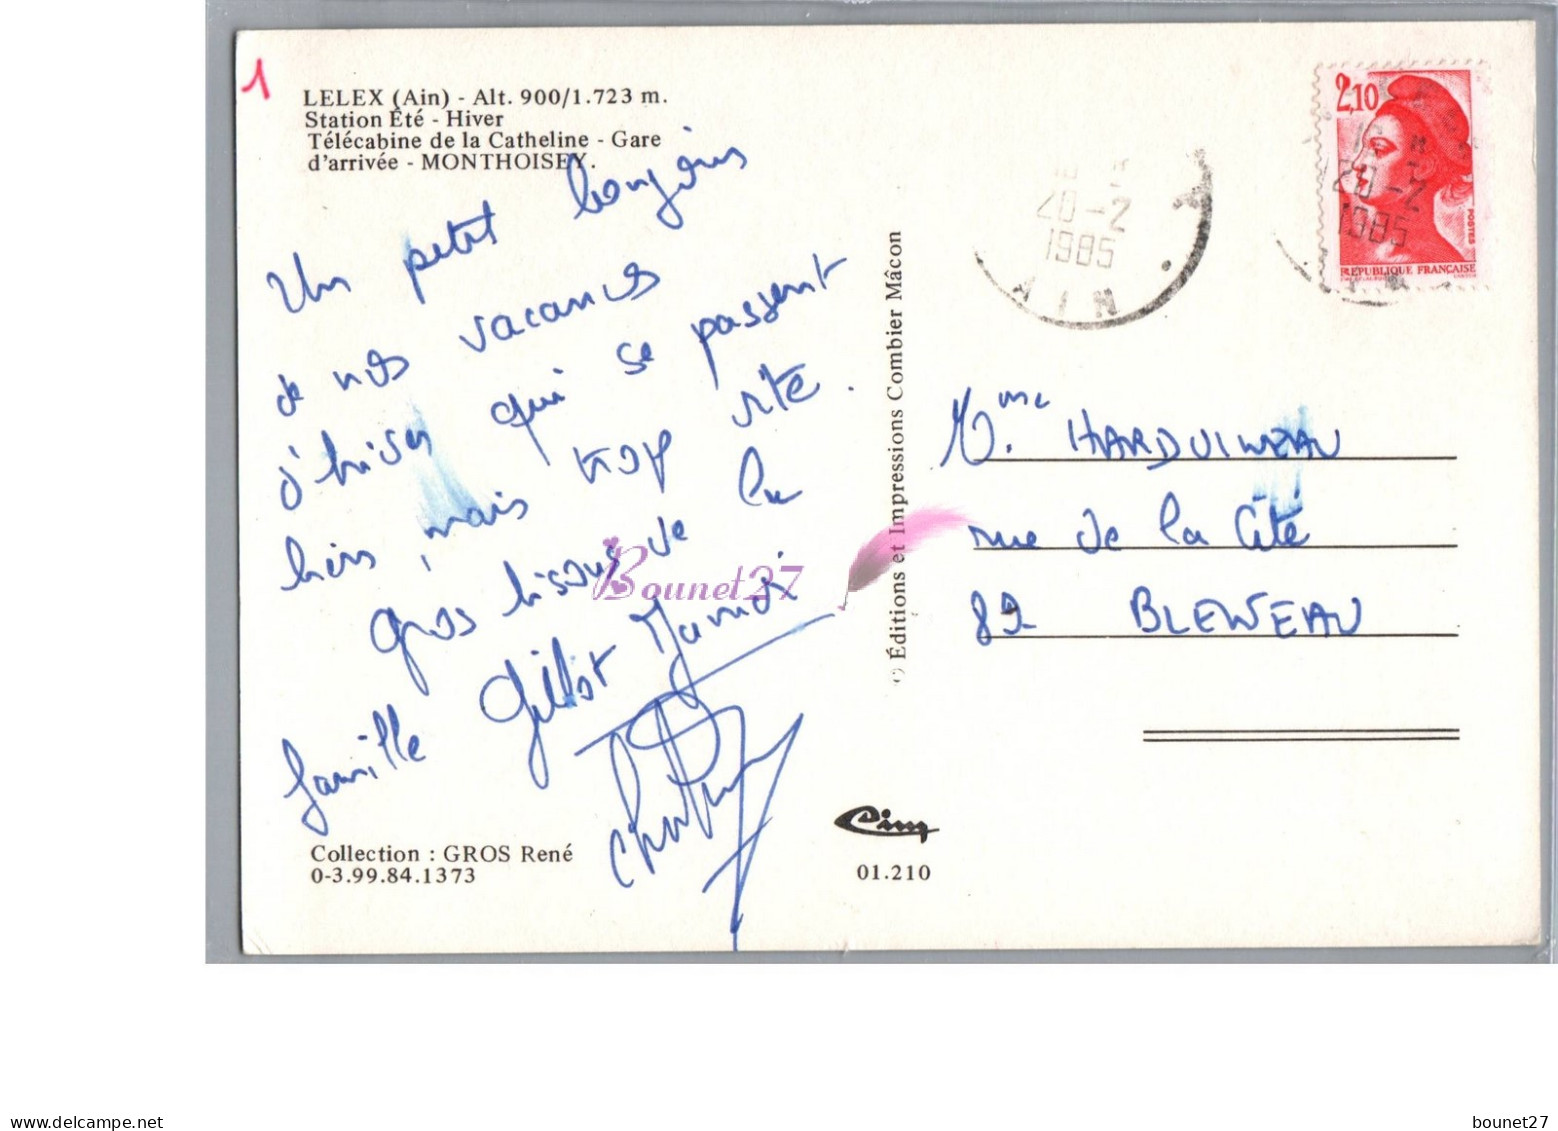 1
LELEX (Ain) - Alt. 900/1.723 m.
Station Été - Hiver
Télécabine de la Catheline - Gare
d'arrivée - MONTHOISEY.
Un petit bonjour
de nos vacances
d'hiver qui se passent
bien, mais trop vite.
Gros bisous de la
famille Gillot
Collection : GROS René
0-3.99.84.1373
© Éditions et Impressions Combier Mâcon
Cim
01.210
20-2
1985
AIN
2,10
POSTES
RÉPUBLIQUE FRANÇAISE
20-2
1985
Mme HARDUINEAU
rue de la Cité
89 BLENEAU
Bounet27
www.delcampe.net
bounet27